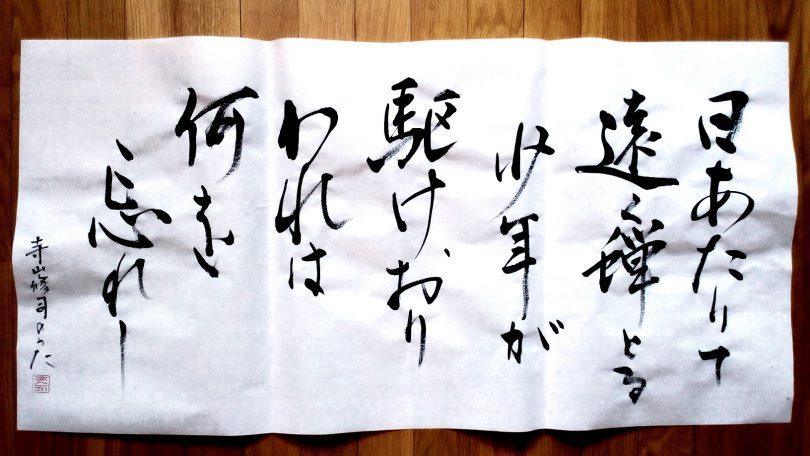 日あたりて
遠く蟬とる
少年が
駆けおり
われは
何を
忘れし
寺山修司のうた